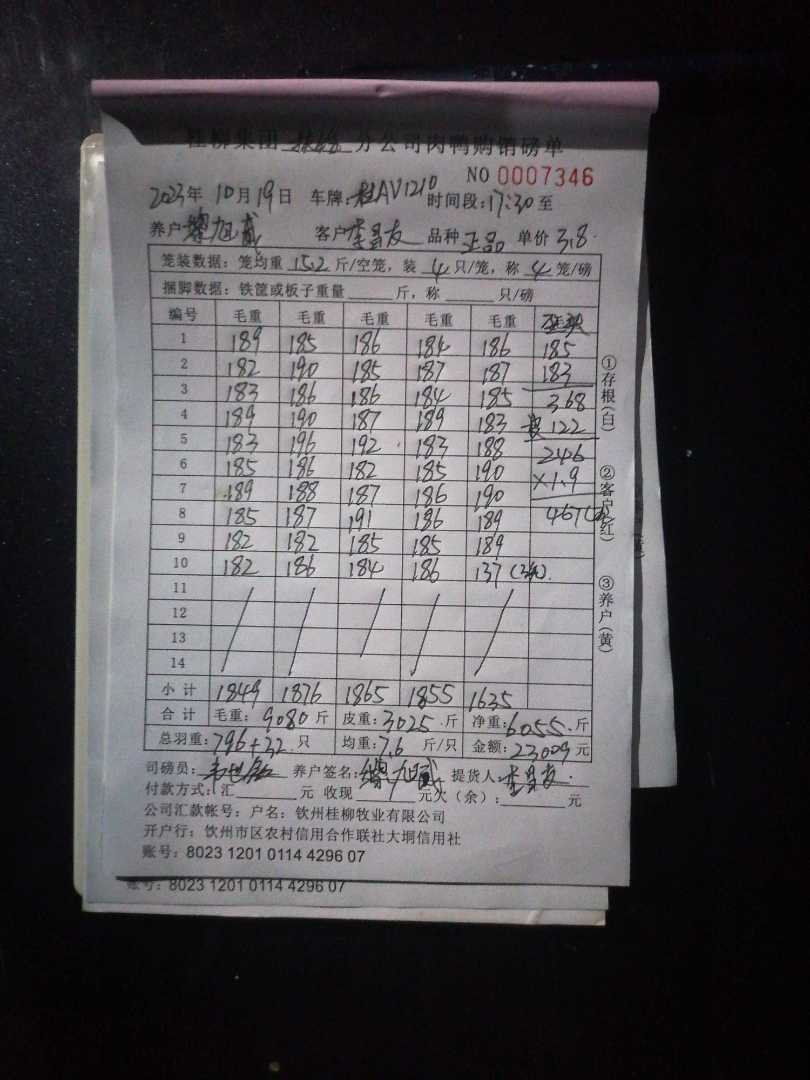 桂柳集团 分公司肉鸭购销磅单
NO 0007346
2023年 10月19日 车牌:桂AV1210 时间段:17:30至
养户 旭 客户李昌友 品种正品 单价3.8.
笼装数据:笼均重 15.2 斤/空笼,装 4 只/笼,称 4 笼/磅
捆脚数据:铁筐或板子重量 斤,称 只/磅
编号 毛重 毛重 毛重 毛重 毛重
1 189 185 186 184 186 185
2 182 190 185 187 187 183
3 183 186 186 184 185 368
4 189 190 187 189 183 122
5 183 196 192 183 188 246
6 185 186 182 185 190 ×1.9
7 189 188 187 186 190 467
8 185 187 191 186 189
9 182 182 185 185 189
10 182 186 184 186 137
11
12
13
14
小计 1849 1876 1865 1855 1635
合计 毛重:9080斤 皮重:3025斤 净重:6055斤
总羽重:796+32只 均重:7.6斤/只 金额:23009元
司磅员: 养户签名: 旭 提货人:李昌友
付款方式:汇 元 收现 元欠(余): 元
公司汇款帐号:户名:钦州桂柳牧业有限公司
开户行:钦州市区农村信用合作联社大垌信用社
账号:8023 1201 0114 4296 07
①存根(白)
②客户(红)
③养户(黄)
账号:8023 1201 0114 4296 07